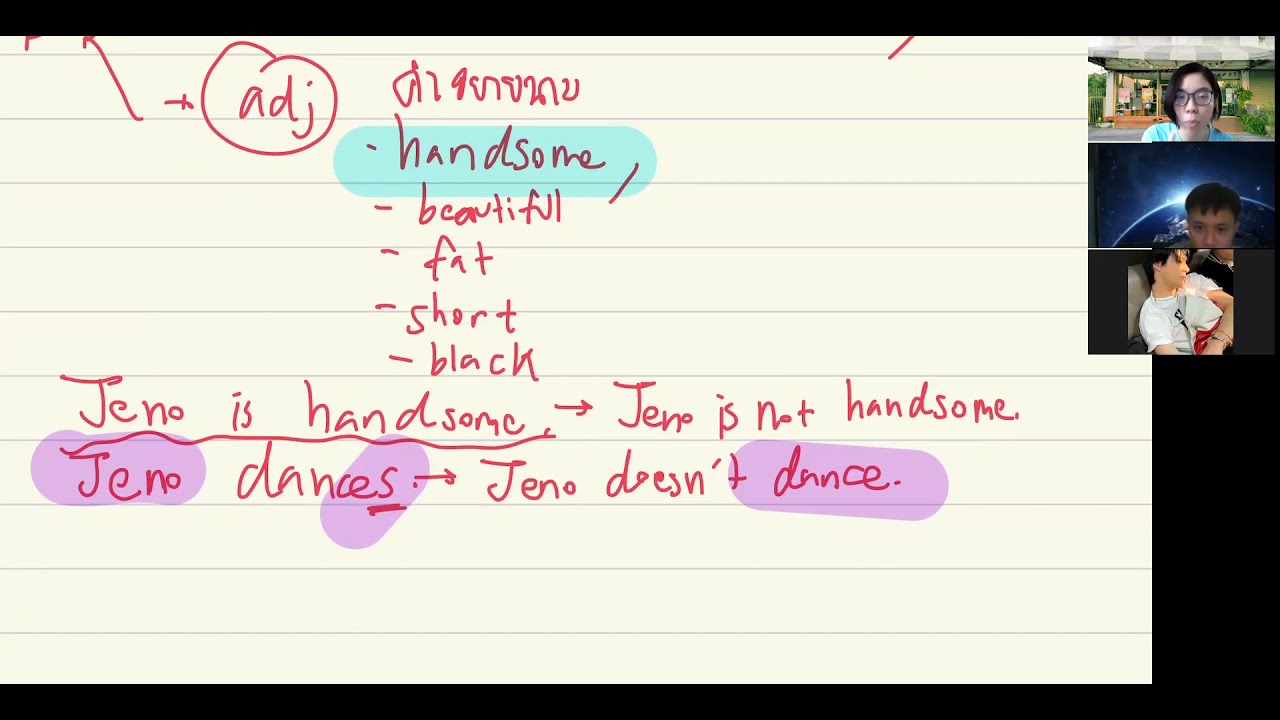 → adj คำขยายนาม
· handsome,
- beautiful
- fat
- short
- black
Jeno is handsome. → Jeno is not handsome.
Jeno dances. → Jeno doesn't dance.